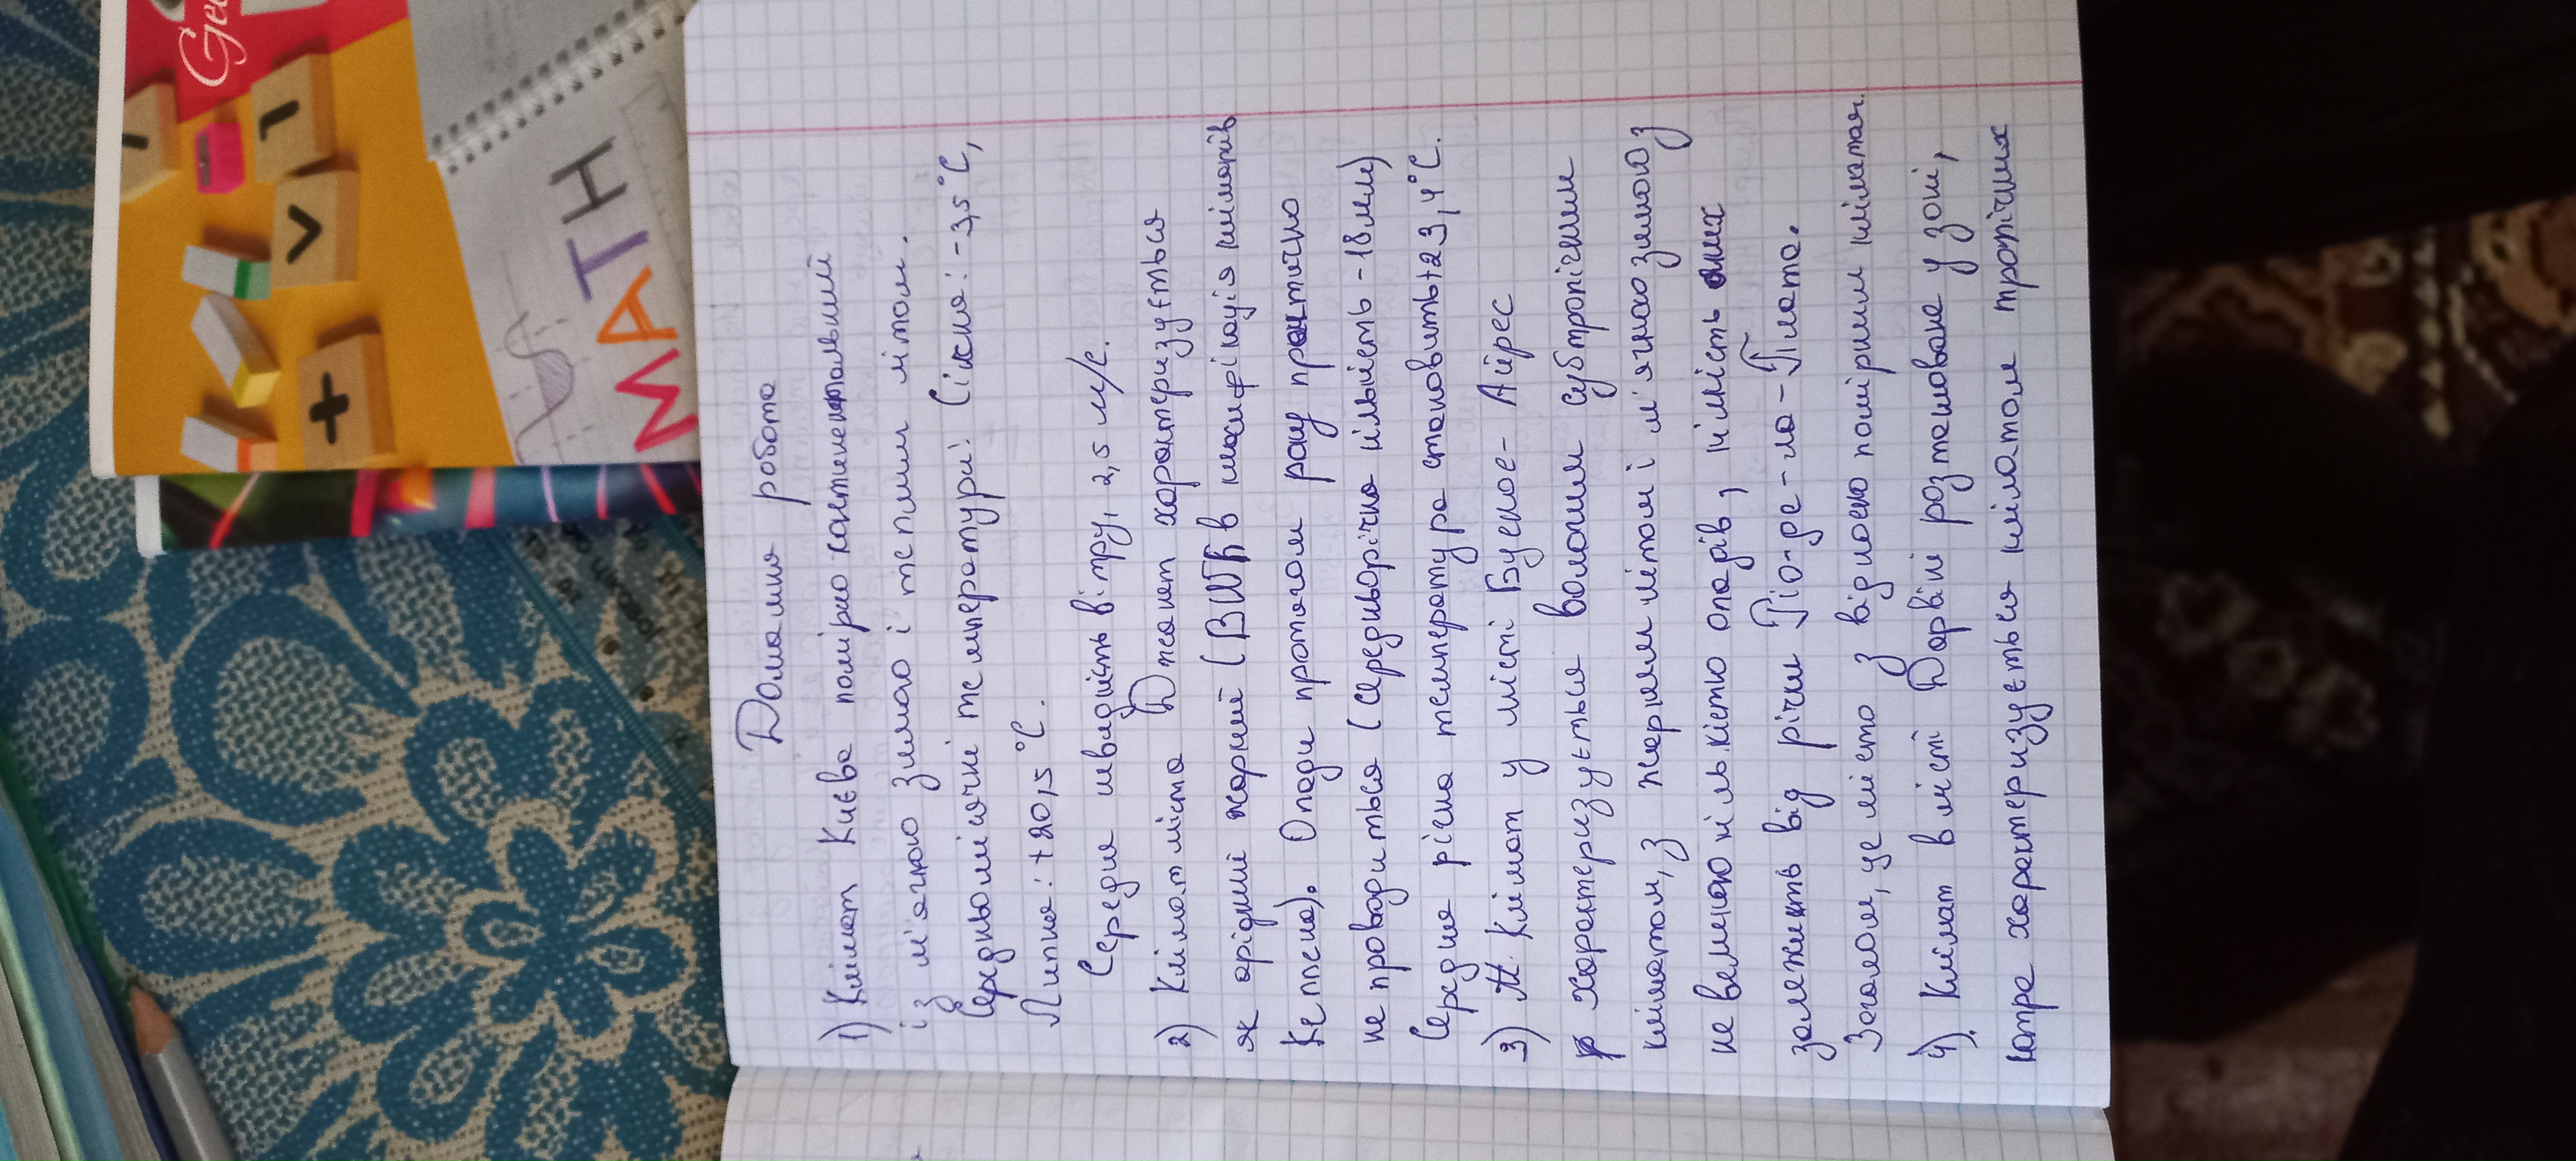 Домашня робота
1) Клімат Києва помірно континентальний
із м'якою зимою і теплим літом.
Середньомісячні температури: Січня: -3,5°С,
Липня: +20,5°С.
Середня швидкість вітру, 2,5 м/с.
2) Клімат міста Джанет характеризується
як арідний жаркий (BWh в класифікація кліматів
Кеппена). Опади протягом року практично
не проводиться (середньорічна кількість - 18 мм)
Середня річна температура становить +23,4°С.
3) Клімат у місті Буенос-Айрес
характеризується вологим субтропічним
кліматом, з жарким літом і м'якою зимою, з
не великою кількістю опадів, кількість яких
залежить від річки Ріо-де-ла-Плата.
Загалом, це місто з відносно помірним кліматом.
4) Клімат в місті Дарвін розташоване у зоні,
котра характеризується кліматом тропічних
MATH